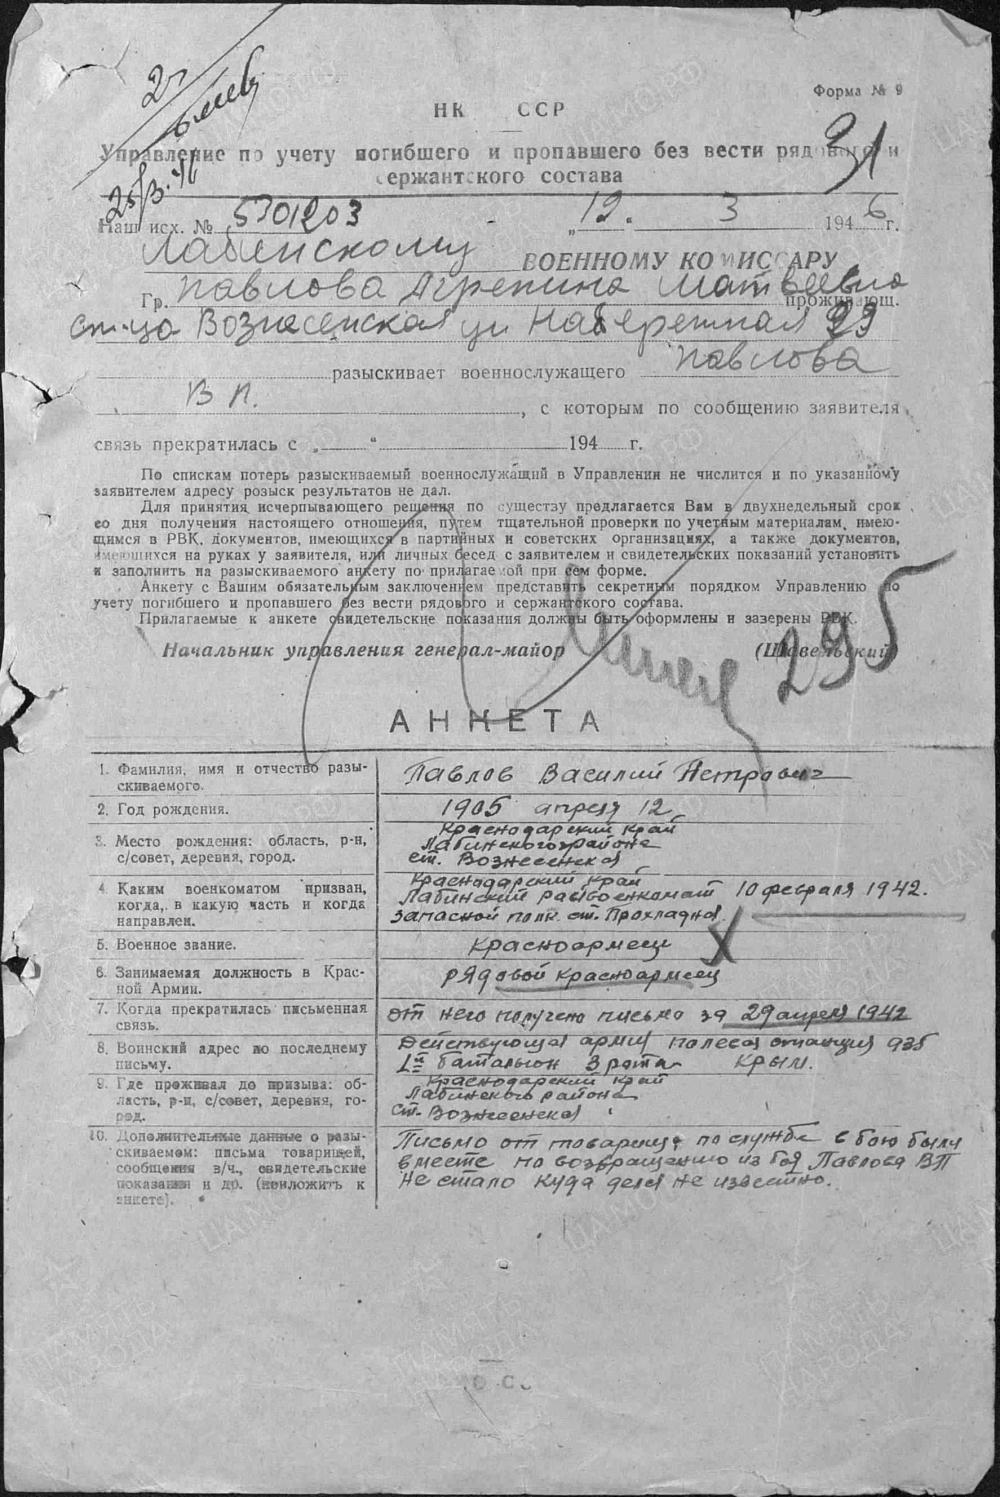 Форма № 9
НК ССР
31
Управление по учету погибшего и пропавшего без вести рядового и
сержантского состава
25/3.46
Наш исх. № 5301203 „19. 3 1946 г.
Лабинскому ВОЕННОМУ КОМИССАРУ
Гр. Павлова Агрепина Матвеевна проживающ.
ст-ца Вознесенская ул Набережная 99
разыскивает военнослужащего Павлова
В П. , с которым по сообщению заявителя
связь прекратилась с „ “ 194 г.
По спискам потерь разыскиваемый военнослужащий в Управлении не числится и по указанному
заявителем адресу розыск результатов не дал.
Для принятия исчерпывающего решения по существу предлагается Вам в двухнедельный срок
со дня получения настоящего отношения, путем тщательной проверки по учетным материалам, имею-
щимся в РВК, документов, имеющихся в партийных и советских организациях, а также документов,
имеющихся на руках у заявителя, или личных бесед с заявителем и свидетельских показаний установить
и заполнить на разыскиваемого анкету по прилагаемой при сем форме.
Анкету с Вашим обязательным заключением представить секретным порядком Управлению по
учету погибшего и пропавшего без вести рядового и сержантского состава.
Прилагаемые к анкете свидетельские показания должны быть оформлены и заверены РВК.
Начальник управления генерал-майор (Шавельский)
295
АНКЕТА
1. Фамилия, имя и отчество разы-
скиваемого.
Павлов Василий Петрович
2. Год рождения.
1905 апреля 12
3. Место рождения: область, р-н,
с/совет, деревня, город.
Краснодарский край
Лабинского района
ст. Вознесенская
4. Каким военкоматом призван,
когда, в какую часть и когда
направлен.
Краснодарский край
Лабинский райвоенкомат 10 февраля 1942.
запасной полк ст. Прохладная
5. Военное звание.
красноармеец
6. Занимаемая должность в Крас-
ной Армии.
рядовой красноармеец
7. Когда прекратилась письменная
связь.
от него получено письмо за 29 апреля 1942
8. Воинский адрес по последнему
письму.
Действующая армия полевая станция 935
1й батальон 3 рота Крым.
9. Где проживал до призыва: об-
ласть, р-н, с/совет, деревня, го-
род.
Краснодарский край
Лабинского района
ст. Вознесенская
10. Дополнительные данные о разы-
скиваемом: письма товарищей,
сообщения в/ч., свидетельские
показания и др. (приложить к
анкете).
Письмо от товарища по службе в бою были
вместе по возвращению из боя Павлова ВП
не стало куда делся не известно.
ПАМЯТЬ
НАРОДА
ЦАМО.РФ